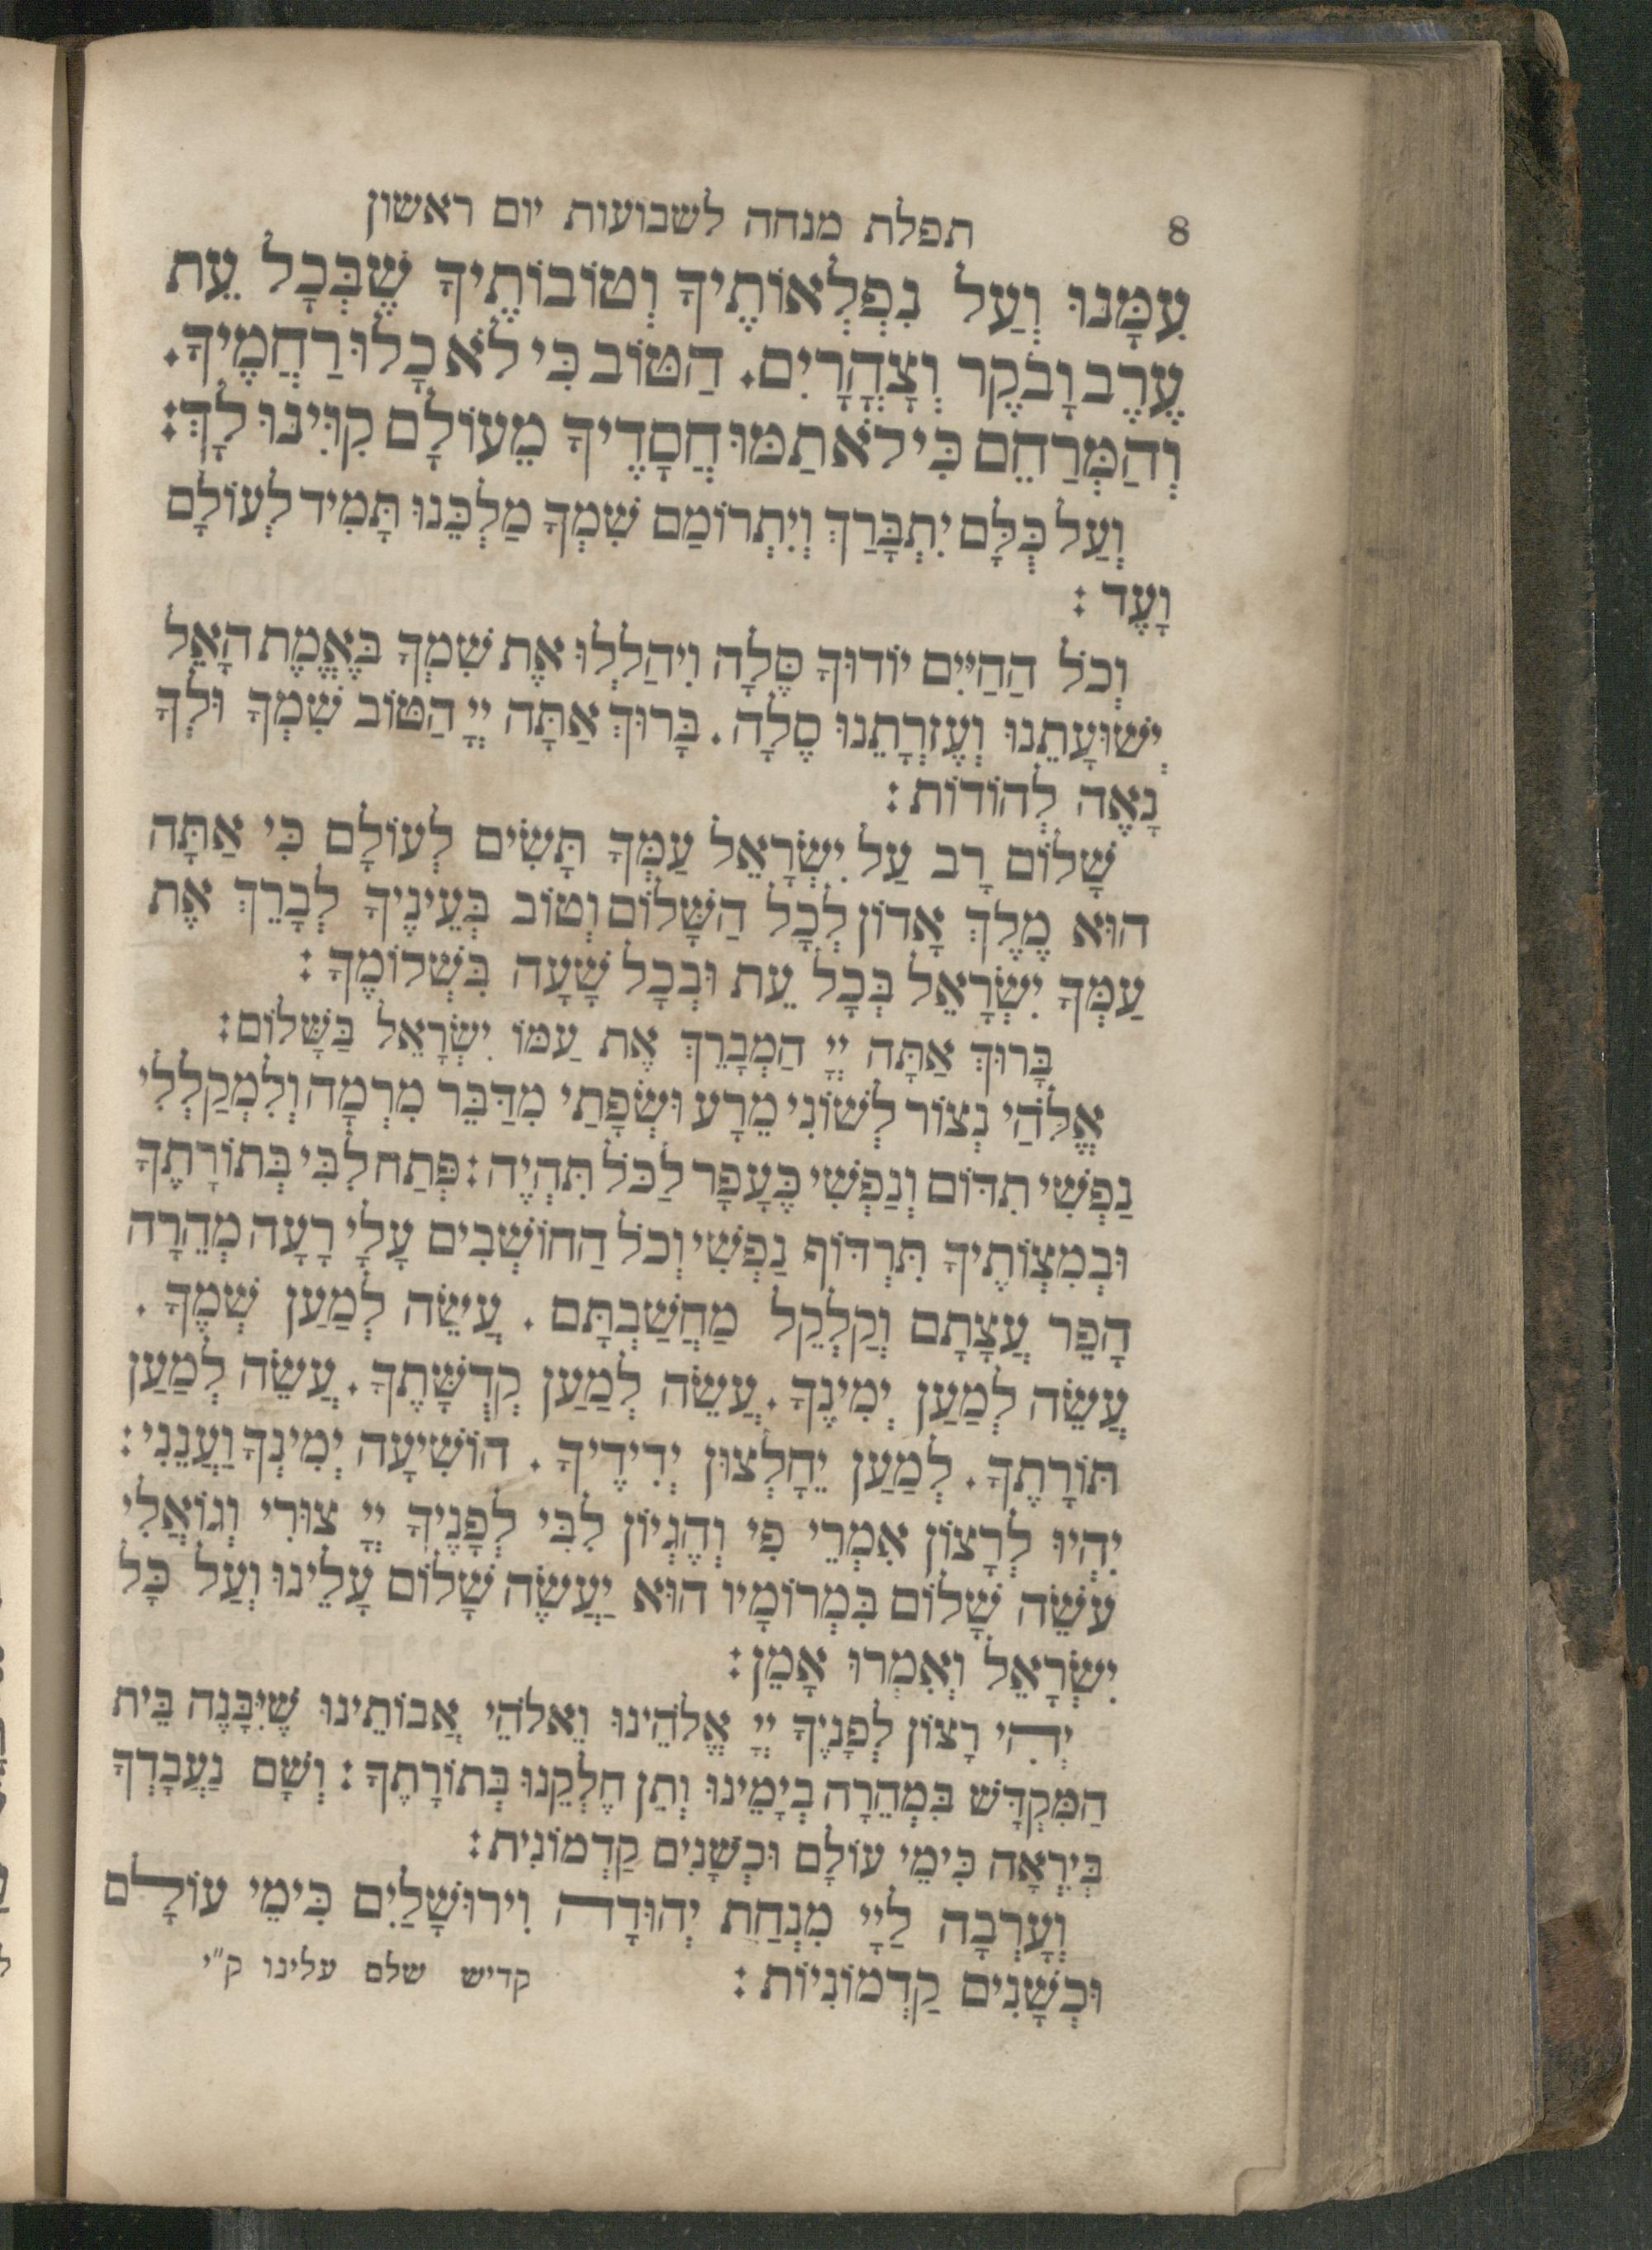 8 תפלת מנחה לשבועות יום ראשון
עִמָּנוּ וְעַל נִפְלְאוֹתֶיךָ וְטוֹבוֹתֶיךָ שֶׁבְּכָל עֵת
עֶרֶב וָבֹקֶר וְצָהֳרָיִם. הַטּוֹב כִּי לֹא כָלוּ רַחֲמֶיךָ.
וְהַמְּרַחֵם כִּי לֹא תַמּוּ חֲסָדֶיךָ מֵעוֹלָם קִוִּינוּ לָךְ:
וְעַל כֻּלָּם יִתְבָּרַךְ וְיִתְרוֹמַם שִׁמְךָ מַלְכֵּנוּ תָּמִיד לְעוֹלָם
וָעֶד :
וְכֹל הַחַיִּים יוֹדוּךָ סֶּלָה וִיהַלְלוּ אֶת שִׁמְךָ בֶּאֱמֶת הָאֵל
יְשׁוּעָתֵנוּ וְעֶזְרָתֵנוּ סֶלָה. בָּרוּךְ אַתָּה יְיָ הַטּוֹב שִׁמְךָ וּלְךָ
נָאֶה לְהוֹדוֹת:
שָׁלוֹם רָב עַל יִשְׂרָאֵל עַמְּךָ תָּשִׂים לְעוֹלָם כִּי אַתָּה
הוּא מֶלֶךְ אָדוֹן לְכָל הַשָּׁלוֹם וְטוֹב בְּעֵינֶיךָ לְבָרֵךְ אֶת
עַמְּךָ יִשְׂרָאֵל בְּכָל עֵת וּבְכָל שָׁעָה בִּשְׁלוֹמֶךָ :
בָּרוּךְ אַתָּה יְיָ הַמְבָרֵךְ אֶת עַמּוֹ יִשְׂרָאֵל בַּשָּׁלוֹם:
אֱלֹהַי נְצוֹר לְשׁוֹנִי מֵרָע וּשְׂפָתַי מִדַּבֵּר מִרְמָה וְלִמְקַלְלַי
נַפְשִׁי תִדּוֹם וְנַפְשִׁי כֶּעָפָר לַכֹּל תִּהְיֶה : פְּתַח לִבִּי בְּתוֹרָתֶךָ
וּבְמִצְוֹתֶיךָ תִּרְדּוֹף נַפְשִׁי וְכֹל הַחוֹשְׁבִים עָלַי רָעָה מְהֵרָה
הָפֵר עֲצָתָם וְקַלְקֵל מַחֲשַׁבְתָּם . עֲשֵׂה לְמַעַן שְׁמֶךָ .
עֲשֵׂה לְמַעַן יְמִינֶךָ. עֲשֵׂה לְמַעַן קְדֻשָּׁתֶךָ. עֲשֵׂה לְמַעַן
תּוֹרָתֶךָ. לְמַעַן יֵחָלְצוּן יְדִידֶיךָ . הוֹשִׁיעָה יְמִינְךָ וַעֲנֵנִי:
יִהְיוּ לְרָצוֹן אִמְרֵי פִי וְהֶגְיוֹן לִבִּי לְפָנֶיךָ יְיָ צוּרִי וְגוֹאֲלִי
עֹשֶׂה שָׁלוֹם בִּמְרוֹמָיו הוּא יַעֲשֶׂה שָׁלוֹם עָלֵינוּ וְעַל כָּל
יִשְׂרָאֵל וְאִמְרוּ אָמֵן:
יְהִי רָצוֹן לְפָנֶיךָ יְיָ אֱלֹהֵינוּ וֵאלֹהֵי אֲבוֹתֵינוּ שֶׁיִּבָּנֶה בֵּית
הַמִּקְדָּשׁ בִּמְהֵרָה בְיָמֵינוּ וְתֵן חֶלְקֵנוּ בְּתוֹרָתֶךָ : וְשָׁם נַעֲבָדְךָ
בְּיִרְאָה כִּימֵי עוֹלָם וּכְשָׁנִים קַדְמוֹנִית:
וְעָרְבָה לַיְיָ מִנְחַת יְהוּדָה וִירוּשָׁלַיִם כִּימֵי עוֹלָם
וּכְשָׁנִים קַדְמוֹנִיוֹת : קדיש שלם עלינו ק״י